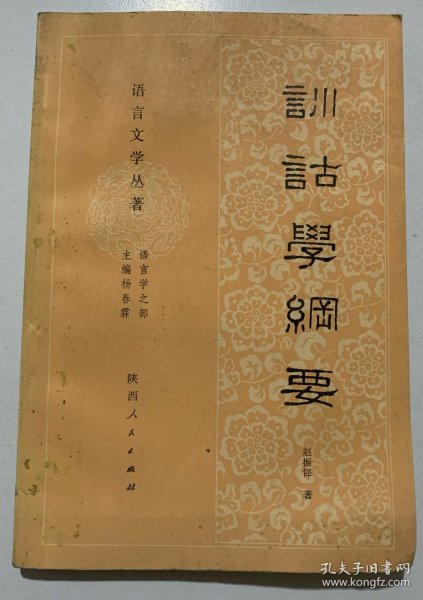 訓詁學綱要
赵振铎 著
语言文学丛著
语言学之部
主编杨春霖
陕西人民出版社
孔夫子旧书网
www.kongfz.com